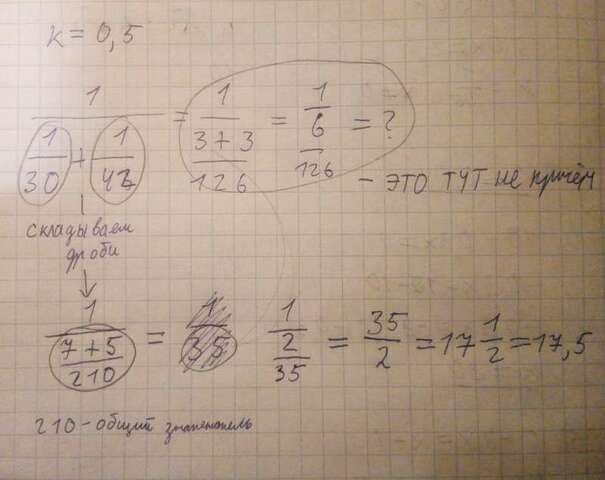 к = 0,5
1/(1/30 + 1/42) = 1/((3+3)/126) = 1/(6/126) = ?
- это тут не причём
складываем
дроби
1/((7+5)/210) = 1/(2/35) = 35/2 = 17 1/2 = 17,5
210 - общий знаменатель